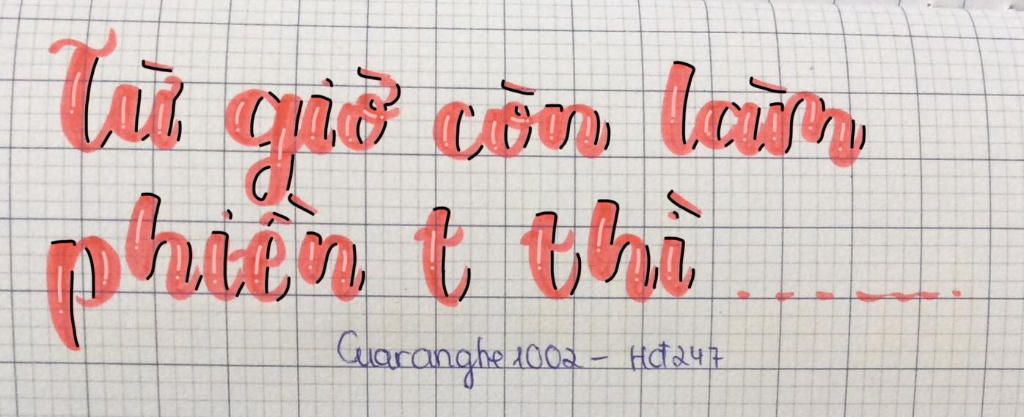 Từ giờ còn làm
phiền t thì .......
Cuaranghe1002 - Hđ247